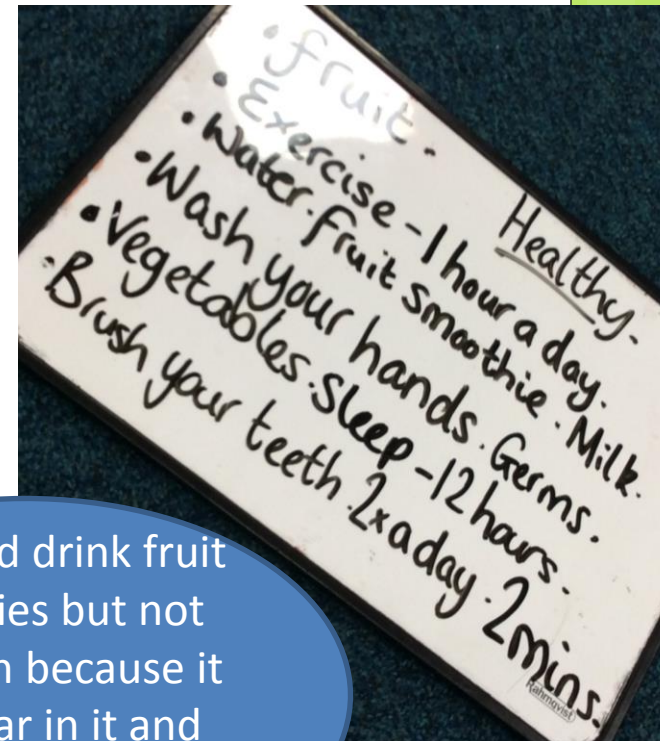 Healthy.
• fruit.
• Exercise - 1 hour a day.
• Water. fruit smoothie. Milk.
• Wash your hands. Germs.
• Vegetables. Sleep - 12 hours.
• Brush your teeth. 2x a day. 2mins.
Rahmqvist
d drink fruit
ies but not
because it
ar in it and